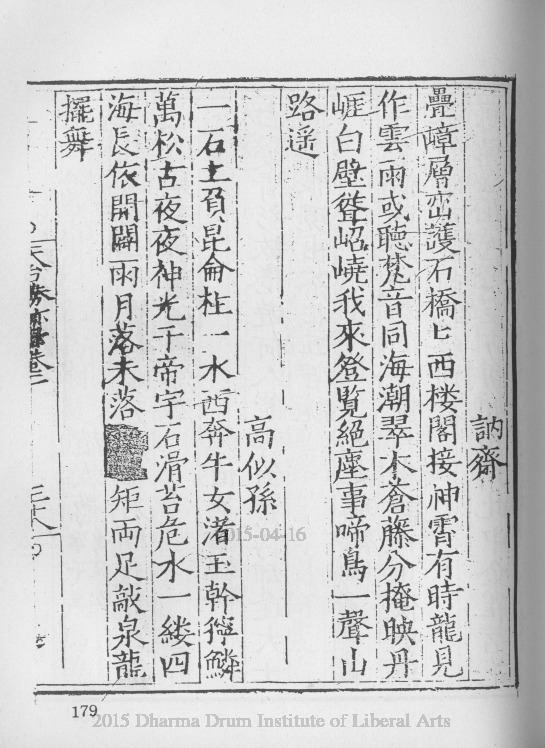 訥齋
疊嶂層巒護石橋匕西楼閣接神霄有時龍見
作雲雨或聽梵音同海潮翠木蒼藤分掩映丹
崕白壁聳岧嶢我來登覧絕塵事啼鳥一聲山
路遥
高似孫
一石土負昆侖柱一水西奔牛女渚玉幹獰鱗
萬松古夜夜神光干帝宇石滑苔危水一縷四
海長依開闢雨月落未落矩両足敲泉龍
擺舞
天台勝跡卷二
179
2015-04-16
2015 Dharma Drum Institute of Liberal Arts